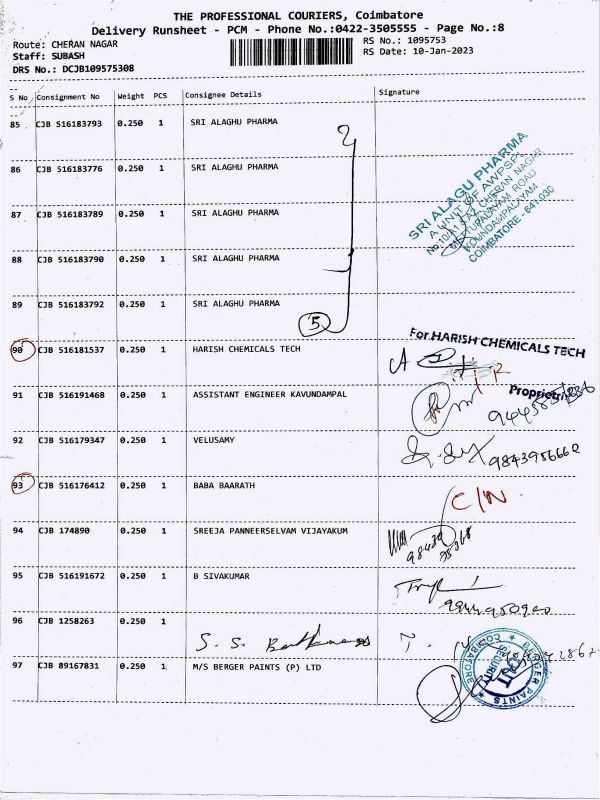 THE PROFESSIONAL COURIERS, Coimbatore
Delivery Runsheet - PCM - Phone No.:0422-3505555 - Page No.:8
Route: CHERAN NAGAR
RS No.: 1095753
Staff: SUBASH
RS Date: 10-Jan-2023
DRS No.: DCJB109575308
S No Consignment No Weight PCS Consignee Details Signature
85 CJB 516183793 0.250 1 SRI ALAGHU PHARMA
86 CJB 516183776 0.250 1 SRI ALAGHU PHARMA
87 CJB 516183789 0.250 1 SRI ALAGHU PHARMA
88 CJB 516183790 0.250 1 SRI ALAGHU PHARMA
89 CJB 516183792 0.250 1 SRI ALAGHU PHARMA
5
SRI ALAGU PHARMA
A UNIT OF AWPSPA
CHERAN NAGAR
METTUPALAYAM ROAD
GOUNDAMPALAYAM
COIMBATORE - 641 030
90 CJB 516181537 0.250 1 HARISH CHEMICALS TECH
For HARISH CHEMICALS TECH
Proprietrix
91 CJB 516191468 0.250 1 ASSISTANT ENGINEER KAVUNDAMPAL
92 CJB 516179347 0.250 1 VELUSAMY
9843956660
93 CJB 516176412 0.250 1 BABA BAARATH
C/N
94 CJB 174890 0.250 1 SREEJA PANNEERSELVAM VIJAYAKUM
95 CJB 516191672 0.250 1 B SIVAKUMAR
9944950900
96 CJB 1258263 0.250 1
S. S.
97 CJB 89167831 0.250 1 M/S BERGER PAINTS (P) LTD
BERGER PAINTS
COIMBATORE
SECURITY